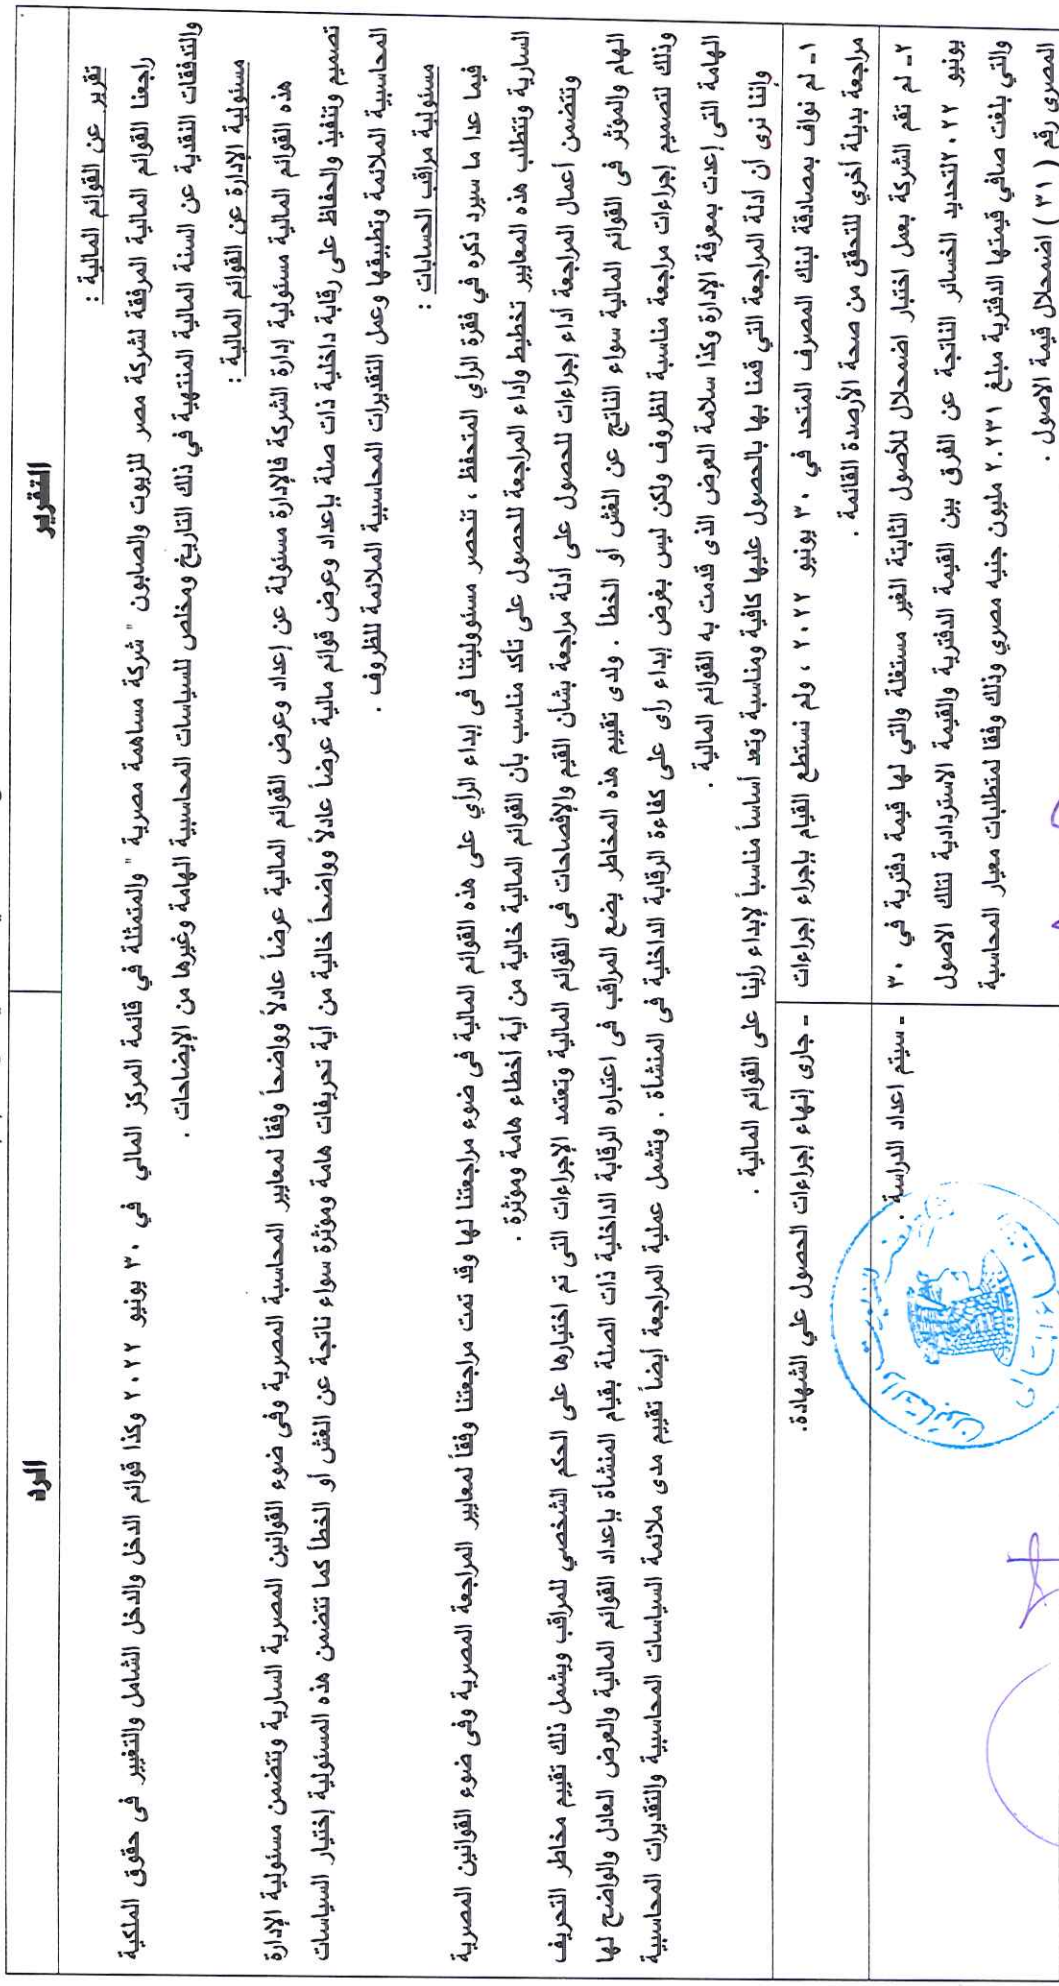 التقرير
الرد
تقرير عن القوائم المالية :
راجعنا القوائم المالية المرفقة لشركة مصر للزيوت والصابون " شركة مساهمة مصرية " والمتمثلة في قائمة المركز المالي في ٣٠ يونيو ٢٠٢٢ وكذا قوائم الدخل والدخل الشامل والتغيير فى حقوق الملكية
والتدفقات النقدية عن السنة المالية المنتهية في ذلك التاريخ وملخص للسياسات المحاسبية الهامة وغيرها من الإيضاحات .
مسئولية الإدارة عن القوائم المالية :
هذه القوائم المالية مسئولية إدارة الشركة فالإدارة مسئولة عن إعداد وعرض القوائم المالية عرضاً عادلاً وواضحاً وفقاً لمعايير المحاسبة المصرية وفى ضوء القوانين المصرية السارية وتتضمن مسئولية الإدارة
تصميم وتنفيذ والحفاظ على رقابة داخلية ذات صلة بإعداد وعرض قوائم مالية عرضاً عادلاً وواضحاً خالية من أية تحريفات هامه ومؤثرة سواء ناتجة عن الغش أو الخطأ كما تتضمن هذه المسئولية إختيار السياسات
المحاسبية الملائمة وتطبيقها وعمل التقديرات المحاسبية الملائمة للظروف .
مسئولية مراقب الحسابات :
فيما عدا ما سيرد ذكره في فقرة الرأي المتحفظ ، تنحصر مسئوليتنا فى إبداء الرأي على هذه القوائم المالية فى ضوء مراجعتنا لها وقد تمت مراجعتنا وفقاً لمعايير المراجعة المصرية وفى ضوء القوانين المصرية
السارية وتتطلب هذه المعايير تخطيط وأداء المراجعة للحصول على تأكد مناسب بأن القوائم المالية خالية من أية أخطاء هامة ومؤثرة .
وتتضمن أعمال المراجعة أداء إجراءات للحصول على أدلة مراجعة بشأن القيم والإفصاحات فى القوائم المالية وتعتمد الإجراءات التى تم اختيارها على الحكم الشخصي للمراقب ويشمل ذلك تقييم مخاطر التحريف
الهام والمؤثر فى القوائم المالية سواء الناتج عن الغش أو الخطأ . ولدى تقييم هذه المخاطر يضع المراقب فى اعتباره الرقابة الداخلية ذات الصلة بقيام المنشاة بإعداد القوائم المالية والعرض العادل والواضح لها
وذلك لتصميم إجراءات مراجعة مناسبة للظروف ولكن ليس بغرض إبداء رأى على كفاءة الرقابة الداخلية فى المنشاة . وتشمل عملية المراجعة أيضاً تقييم مدى ملائمة السياسات المحاسبية والتقديرات المحاسبية
الهامة التى أعدت بمعرفة الإدارة وكذا سلامة العرض الذى قدمت به القوائم المالية .
وأننا نرى أن أدلة المراجعة التي قمنا بالحصول عليها كافية ومناسبة وتعد أساساً مناسباً لإبداء رأينا على القوائم المالية .
١- لم نواف بمصادقة لبنك المصرف المتحد في ٣٠ يونيو ٢٠٢٢ ، ولم نستطع القيام بإجراء إجراءات
مراجعة بديلة أخري للتحقق من صحة الأرصدة القائمة .
- جارى إنهاء إجراءات الحصول علي الشهادة.
٢- لم تقم الشركة بعمل اختبار اضمحلال للأصول الثابتة الغير مستغلة والتي لها قيمة دفترية في ٣٠
يونيو ٢٠٢٢ لتحديد الخسائر الناتجة عن الفرق بين القيمة الدفترية والقيمة الاستردادية لتلك الاصول
والتي بلغت صافي قيمتها الدفترية مبلغ ٢.٢٣١ مليون جنيه مصري وذلك وفقا لمتطلبات معيار المحاسبة
المصرى رقم ( ٣١ ) اضمحلال قيمة الاصول .
- سيتم اعداد الدراسة .